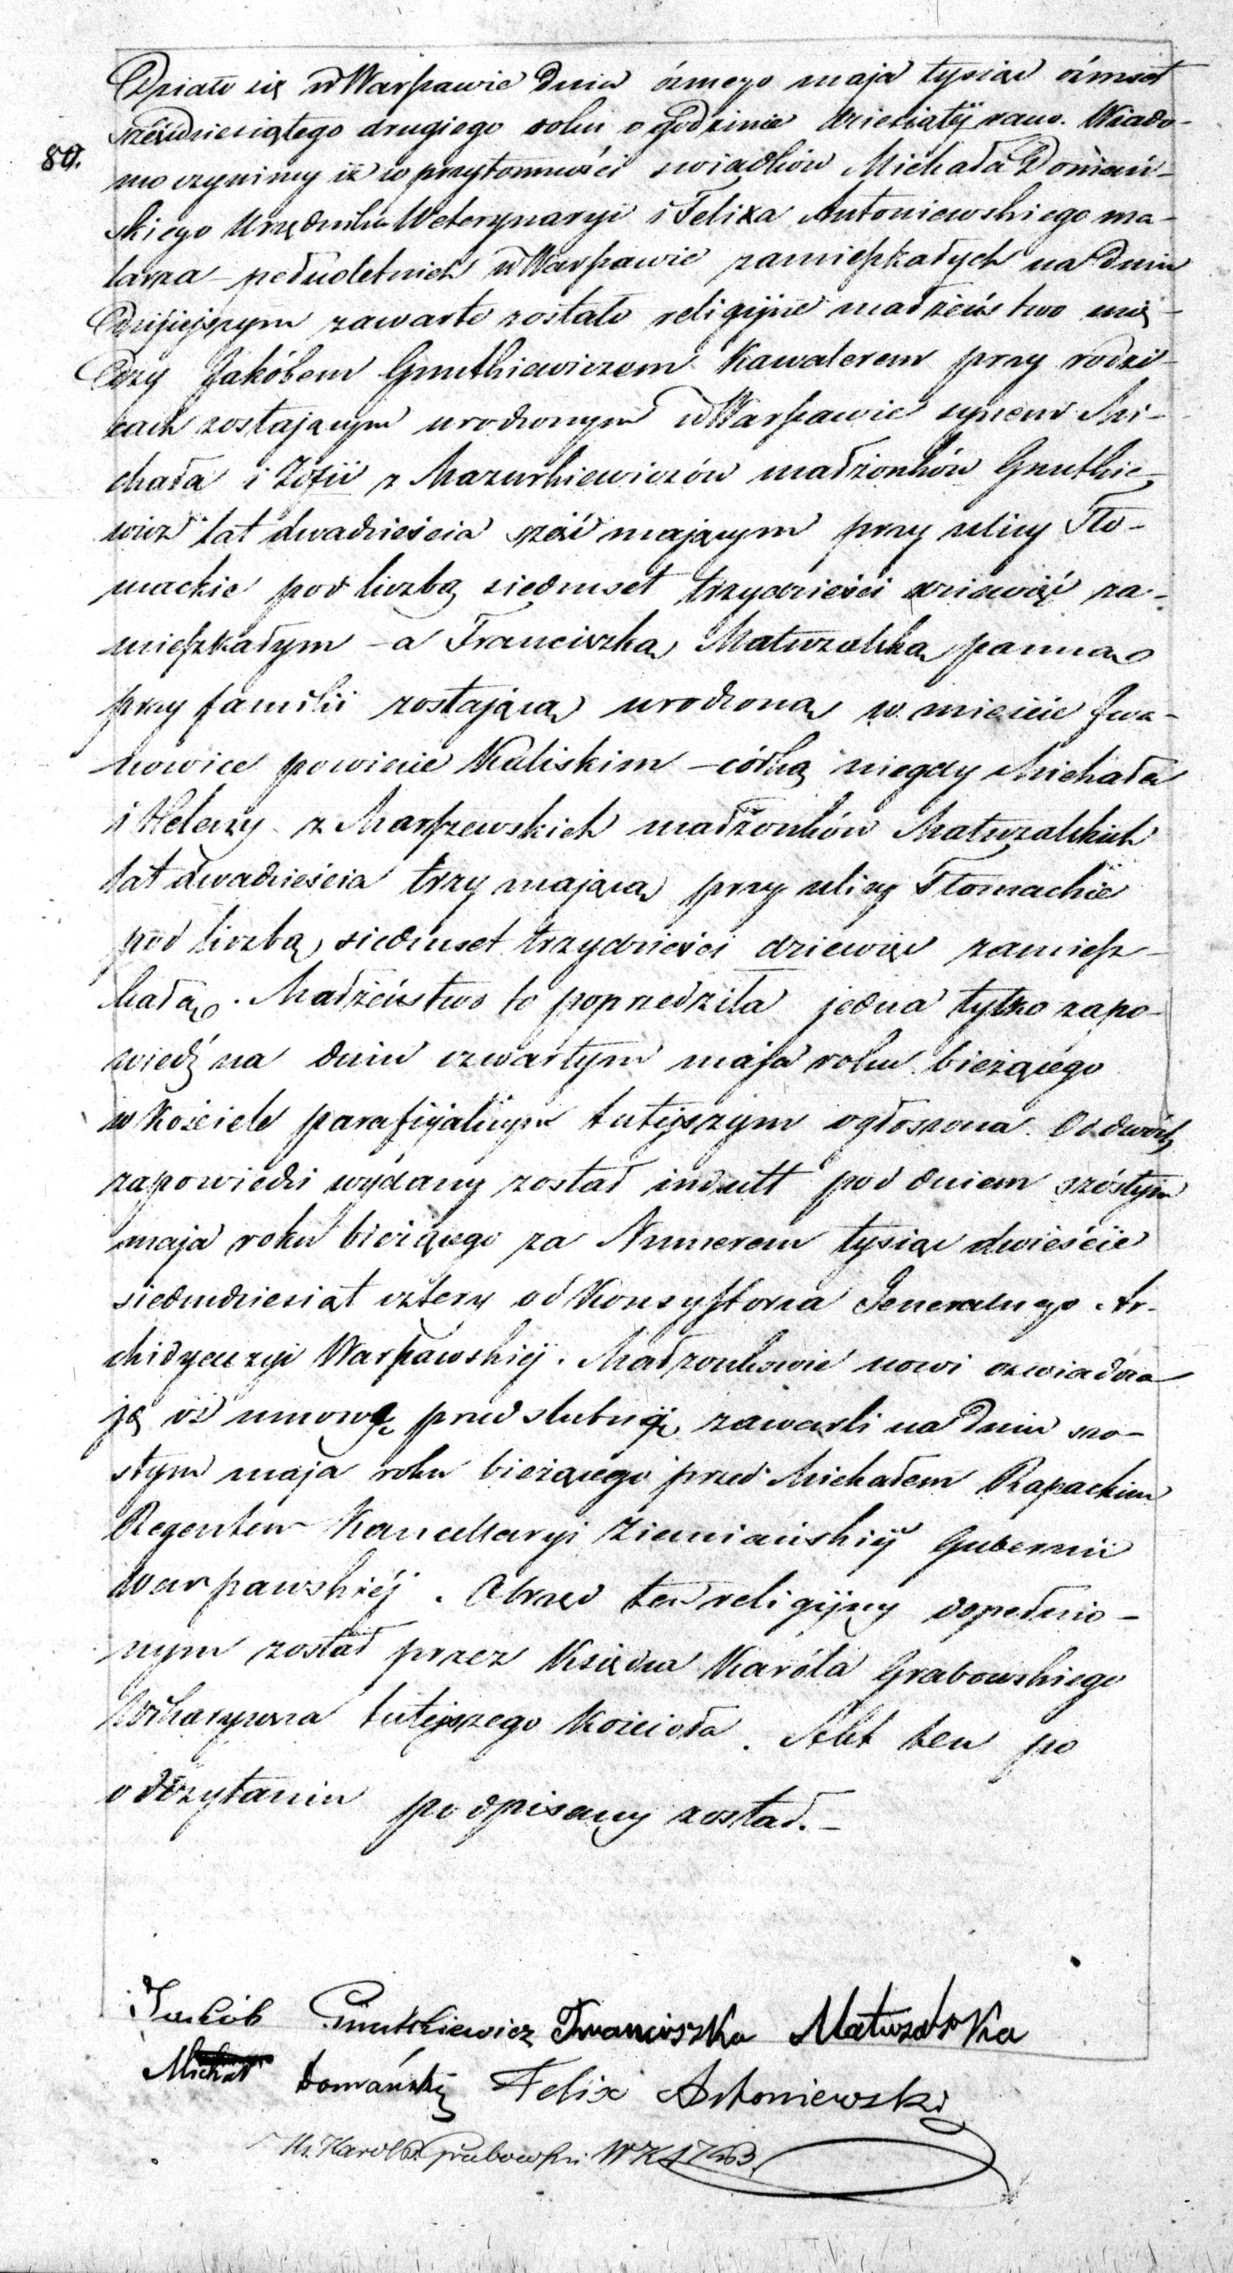 Działo się w Warszawie dnia ósmego maja tysiąc ośmset
sześćdziesiątego drugiego roku o godzinie dziesiątéj rano. Wiado-
80.
mo czynimy iż w przytomności swiadków Michała Domań-
skiego Urzędnika Weterynaryi i Felixa Antoniewskiego ma-
larza pełnoletnich w Warszawie zamieszkałych na dniu
dzisiejszym zawarte zostało religijne małżeństwo mię-
dzy Jakóbem Gnutkiewiczem Kawalerem przy rodzi-
cach zostającym urodzonym w Warszawie synem Mi-
chała i Zofii z Mazurkiewiczów małżonków Gnutkie-
wicz lat dwadzieścia sześć mającym przy ulicy Tło-
mackie pod liczbą siedmset trzydzieści dziewięć za-
mieszkałym – a Franciszką Matuszalską panną
przy familii zostającą urodzoną w mieście Iwa-
nowice powiecie Kaliskim – córką niegdy Michała
i Heleny z Marszewskich małżonków Matuszalskich
lat dwadzieścia trzy mającą przy ulicy Tłomackie
pod liczbą siedmset trzydzieści dziewięć zamiesz-
kałą. Małżeństwo to poprzedziła jedna tylko zapo-
wiedź na dniu czwartym maja roku bieżącego
w kościele parafijalnym tutejszym ogłoszona. Od dwóch
zapowiedzi wydany został indult pod dniem szóstym
maja roku bieżącego za Numerem tysiąc dwieście
siedmdziesiąt cztery od Konsystorza Jeneralnego Ar-
chidyecezyi Warszawskiéj. Małżonkowie nowi oświadcza
ją iż umowę przedslubną zawarli na dniu szo-
stym maja roku bieżącego przed Michałem Rapackim
Regentem Kancellaryi Ziemiańskiéj Gubernii
Warszawskiéj. Obrzęd ten religijny dopełnio-
nym został przez Księdza Karóla Grabowskiego
Wikaryusza tutejszego Kościoła. Akt ten po
odczytaniu podpisany został. –
Jakób Gnutkiewicz Franciszka Matuszalska
Michał Domański Felix Antoniewski
Ks. Karol Grabowski